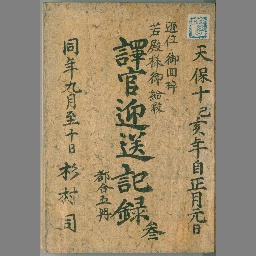 天保十己亥年自正月元日
遜位御回祥
若殿様御船發
譯官迎送記録 叁
都合五冊
同年九月至十日 杉村司